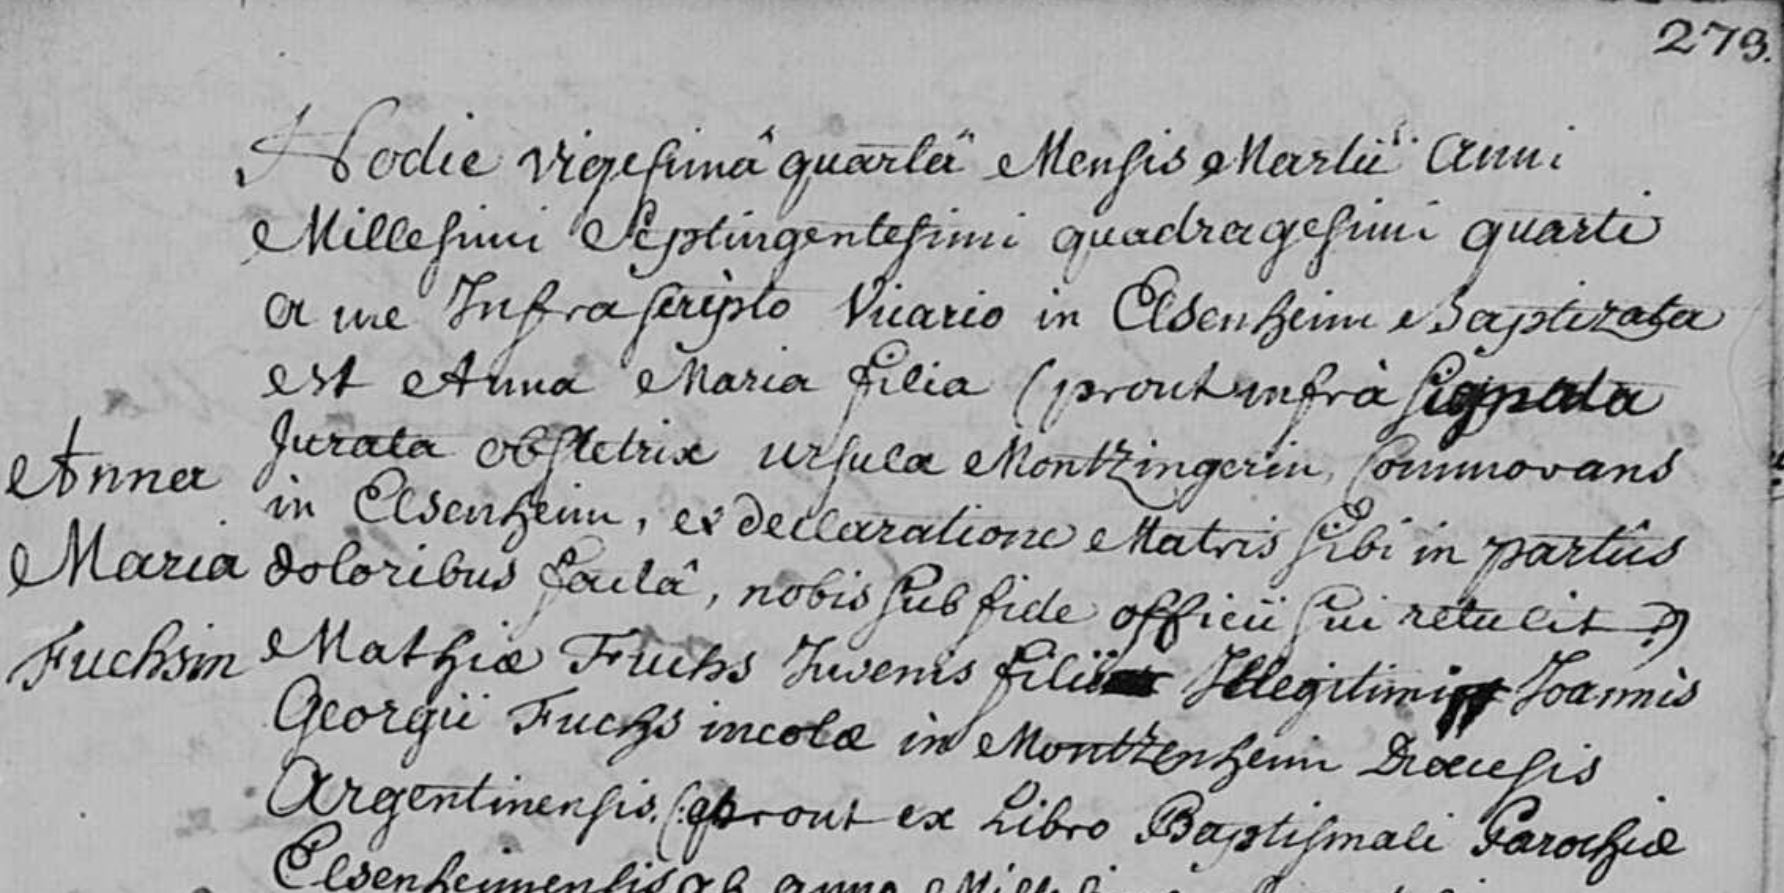 279.
Hodie vigesimâ quartâ Mensis Martii Anni
Millesimi Septingentesimi quadragesimi quarti
a me Infrascripto Vicario in Elsenheim Baptizata
est Anna Maria filia (prout infrà signata
Jurata obstetrix Ursula Montzingerin, Commorans
in Elsenheim, ex declaratione Matris sibi in partûs
doloribus factâ, nobis sub fide officii sui retulit)
Anna
Maria
Fuchsin
Mathiæ Fuchs Juvenis filii Illegitimi Joannis
Georgii Fuchs incolæ in Montzenheim Diœcesis
Argentinensis. (prout ex Libro Baptismali Parochiæ
Elsenheimensis ab anno